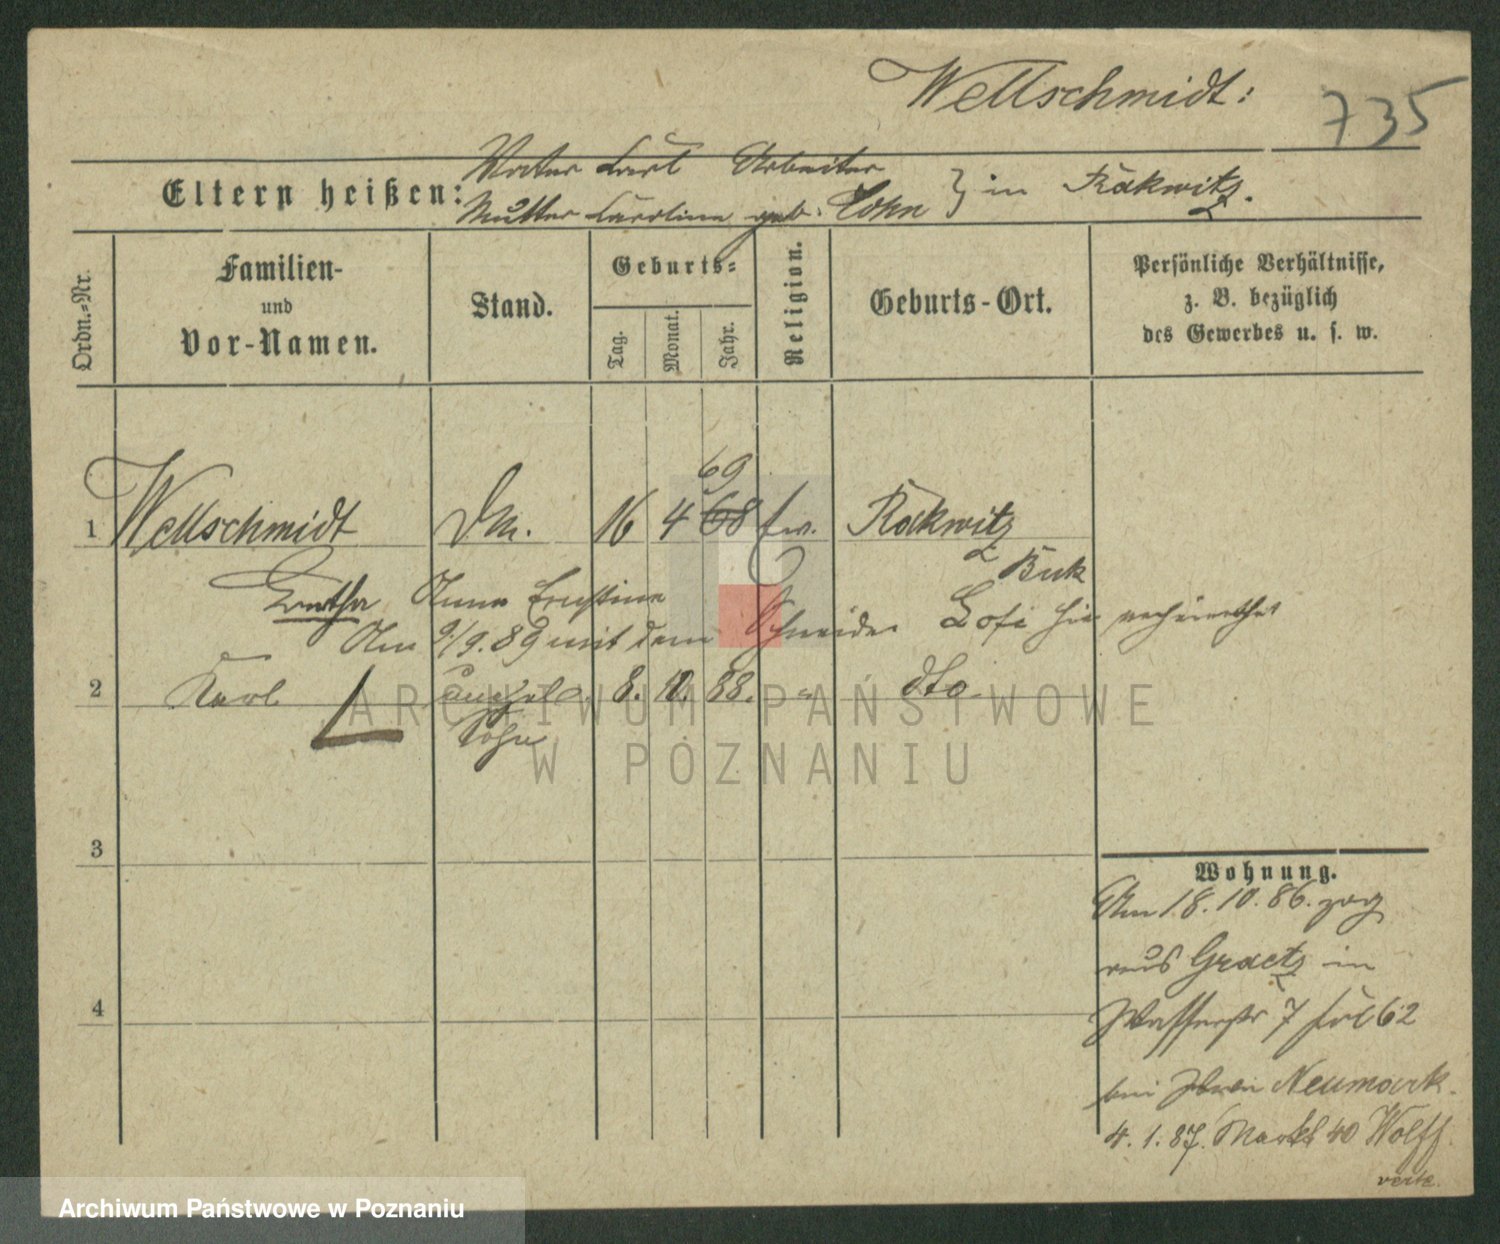 Wellschmidt:
735
Eltern heißen:
Vater Karl Arbeiter
Mutter Caroline geb. Cohn } in Rakwitz.
Ordn.-Nr.
Familien-
und
Vor-Namen.
Stand.
Geburts-
Tag.
Monat.
Jahr.
Religion.
Geburts-Ort.
Persönliche Verhältnisse,
z. B. bezüglich
des Gewerbes u. s. w.
69
1 Wellschmidt 16 4 68 ev. Rakwitz
Buk
Anna Ernstine
Am 9/9.89 mit dem Schneider hier verheirathet
2 Karl 8. 10. 88. " dto
Sohn
3
4
Wohnung.
Am 18.10.86. zog
aus Graetz in
Wasserstr 7 63
bei Neumark.
4.1.87. Markt 40 Wolff.
ARCHIWUM PAŃSTWOWE
W POZNANIU
Archiwum Państwowe w Poznaniu